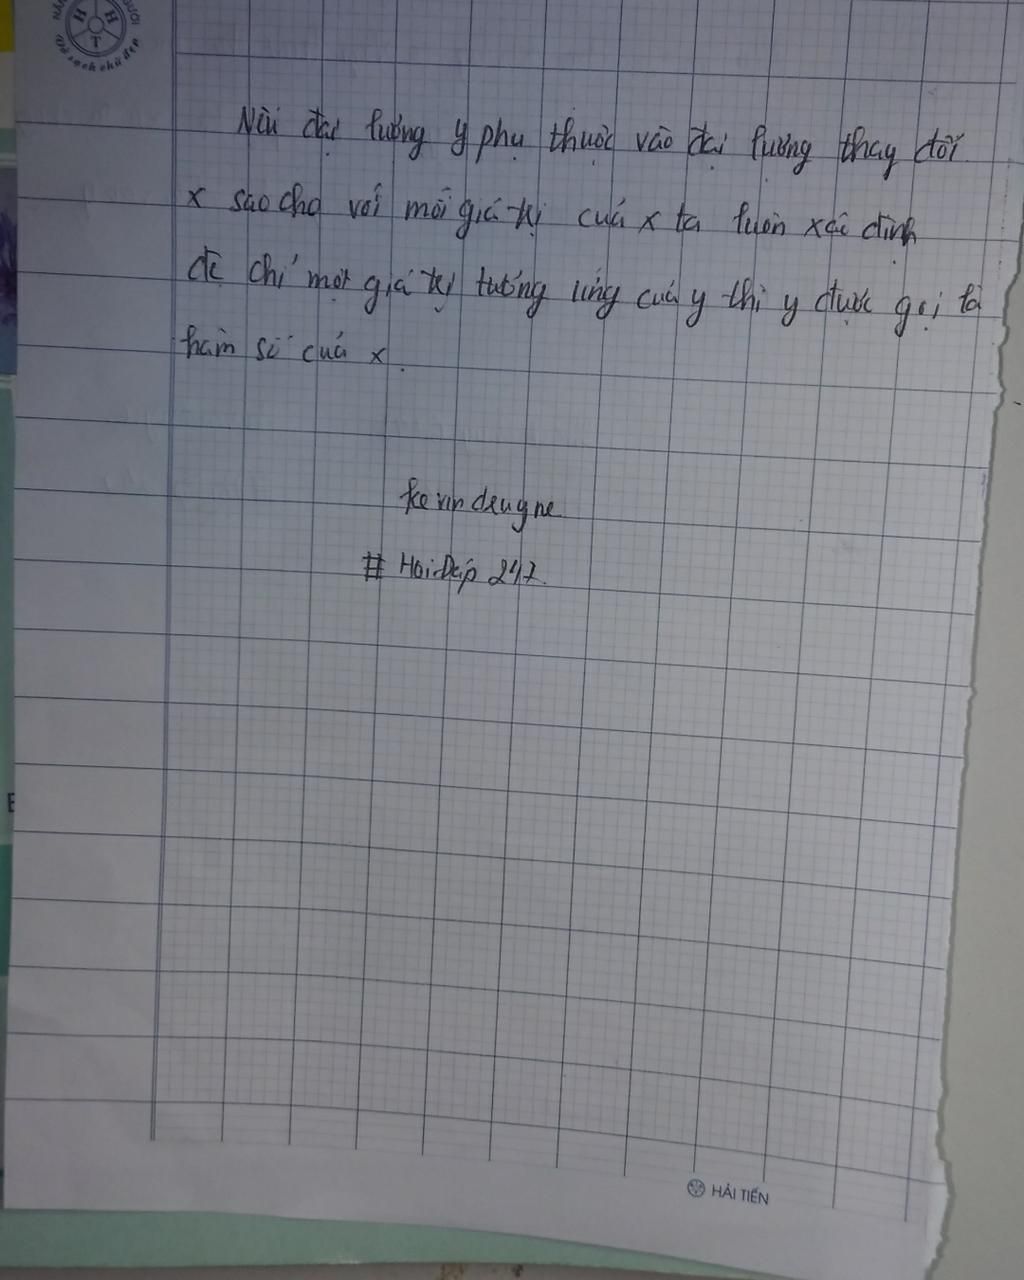 NGƯỜI
H H T
Vở sạch chữ đẹp
Nếu đại lượng y phụ thuộc vào đại lượng thay đổi
x sao cho với mỗi giá trị của x ta luôn xác định
đc chỉ một giá trị tương ứng của y thì y được gọi là
hàm số của x.
kevin deuyne
# HoiĐáp 247.
HẢI TIẾN